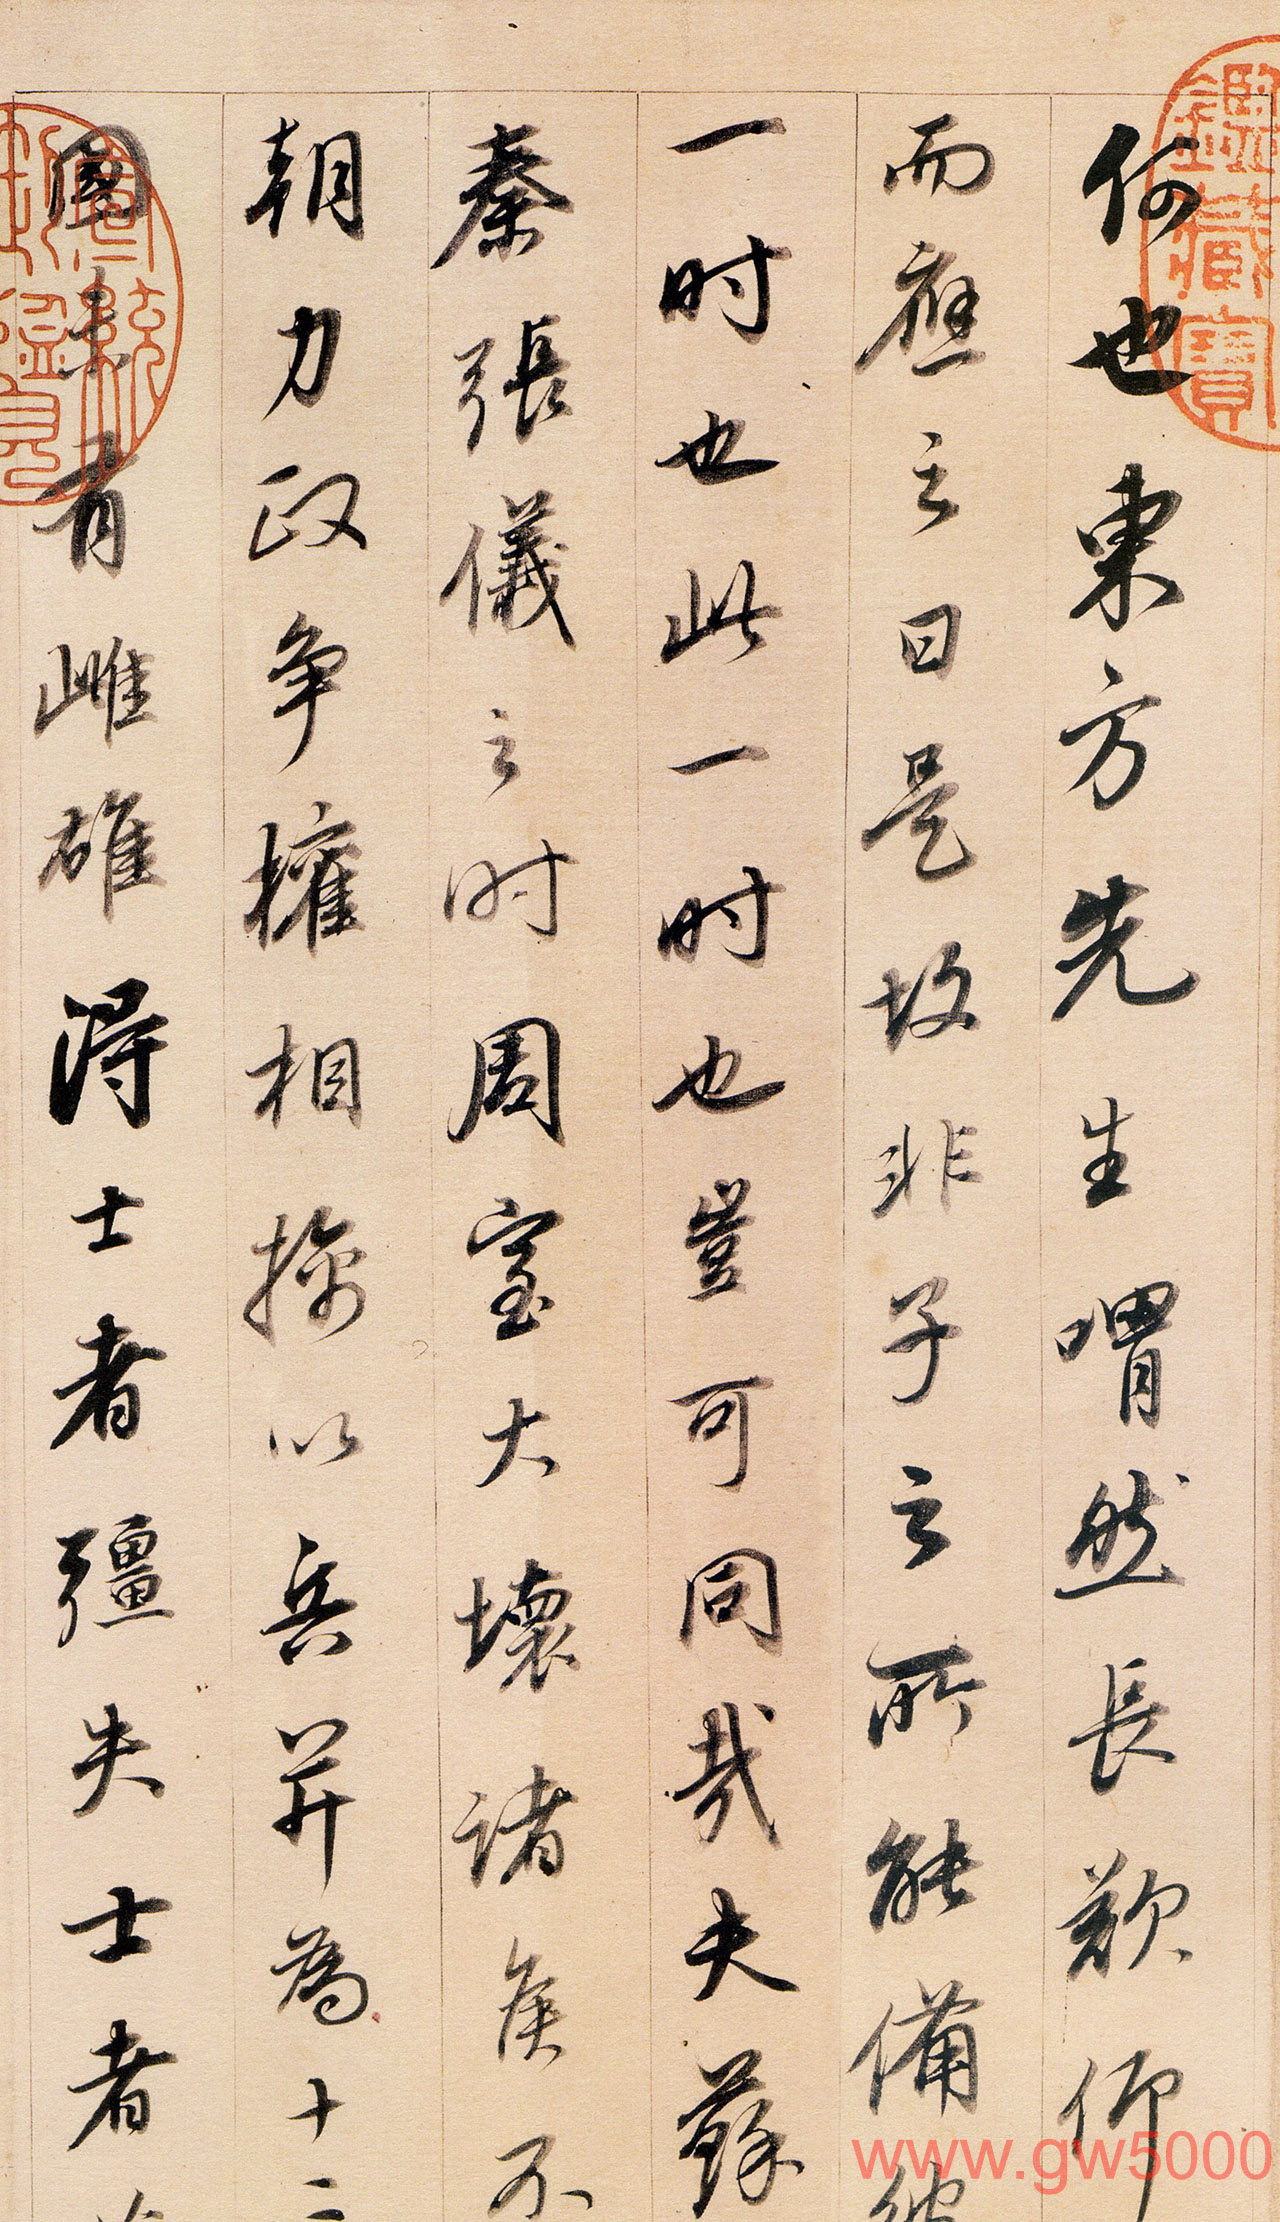 何也東方先生喟然長歎仰
而應之曰是故非子之所能備彼
一時也此一時也豈可同哉夫蘇
秦張儀之時周室大壞諸侯不
朝力政争權相擒以兵并為十二
國未有雌雄得士者彊失士者
鑑藏寶
宣統御覽
www.gw5000